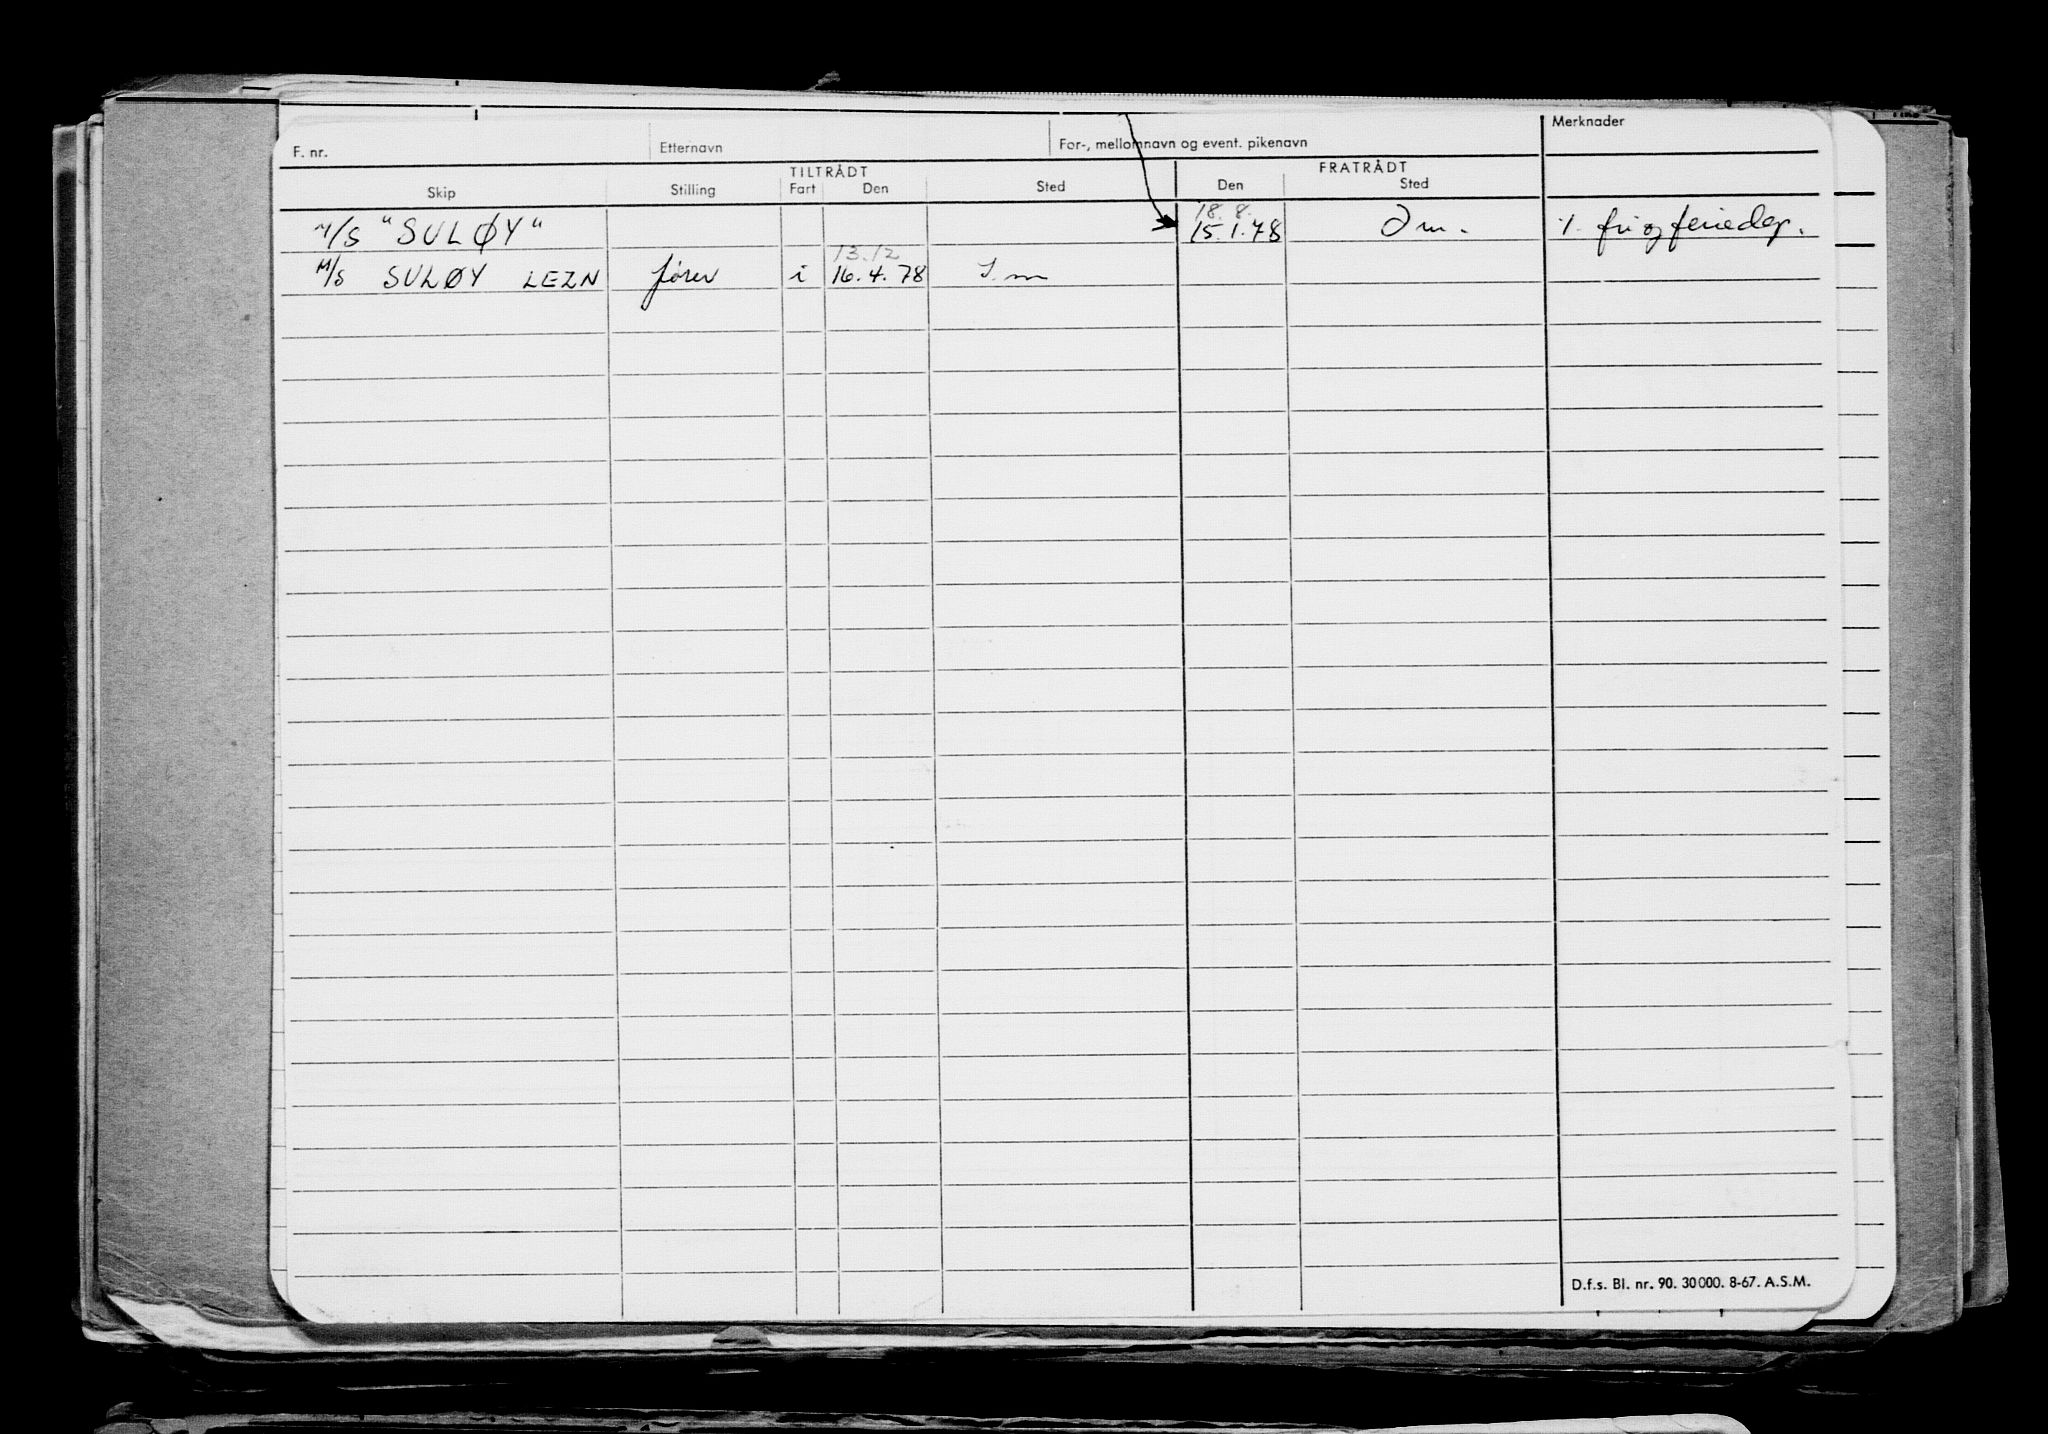 Merknader
F. nr. Etternavn For-, mellomnavn og event. pikenavn
TILTRÅDT FRATRÅDT
Skip Stilling Fart Den Sted Den Sted
18. 8.
M/S "SULØY" 15.1.78 fri og feriedg.
13.12
M/S SULØY LEZN fører i 16.4.78
D.f.s. Bl. nr. 90. 30000. 8-67. A.S.M.